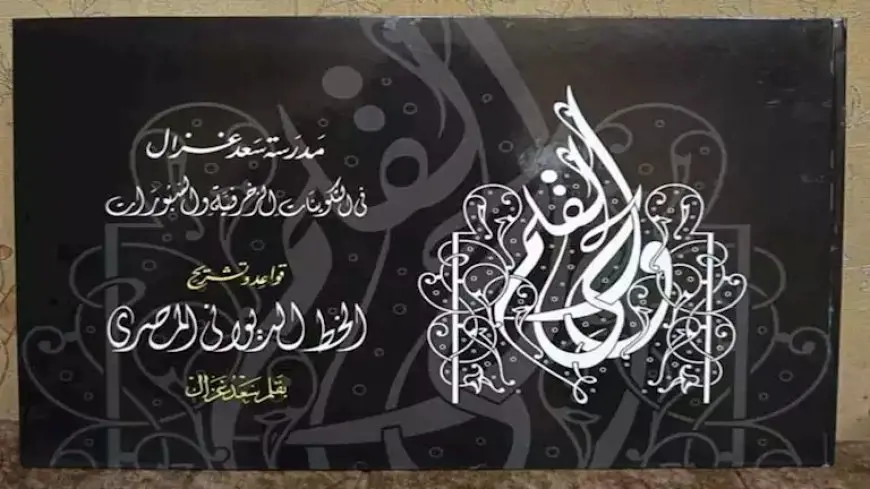 وحى القلم
مدرسة سعد غزال
فى التكوينات الزخرفية والتيورات
قواعد وتشريح
الخط الديوانى المصرى
بقلم سعد غزال